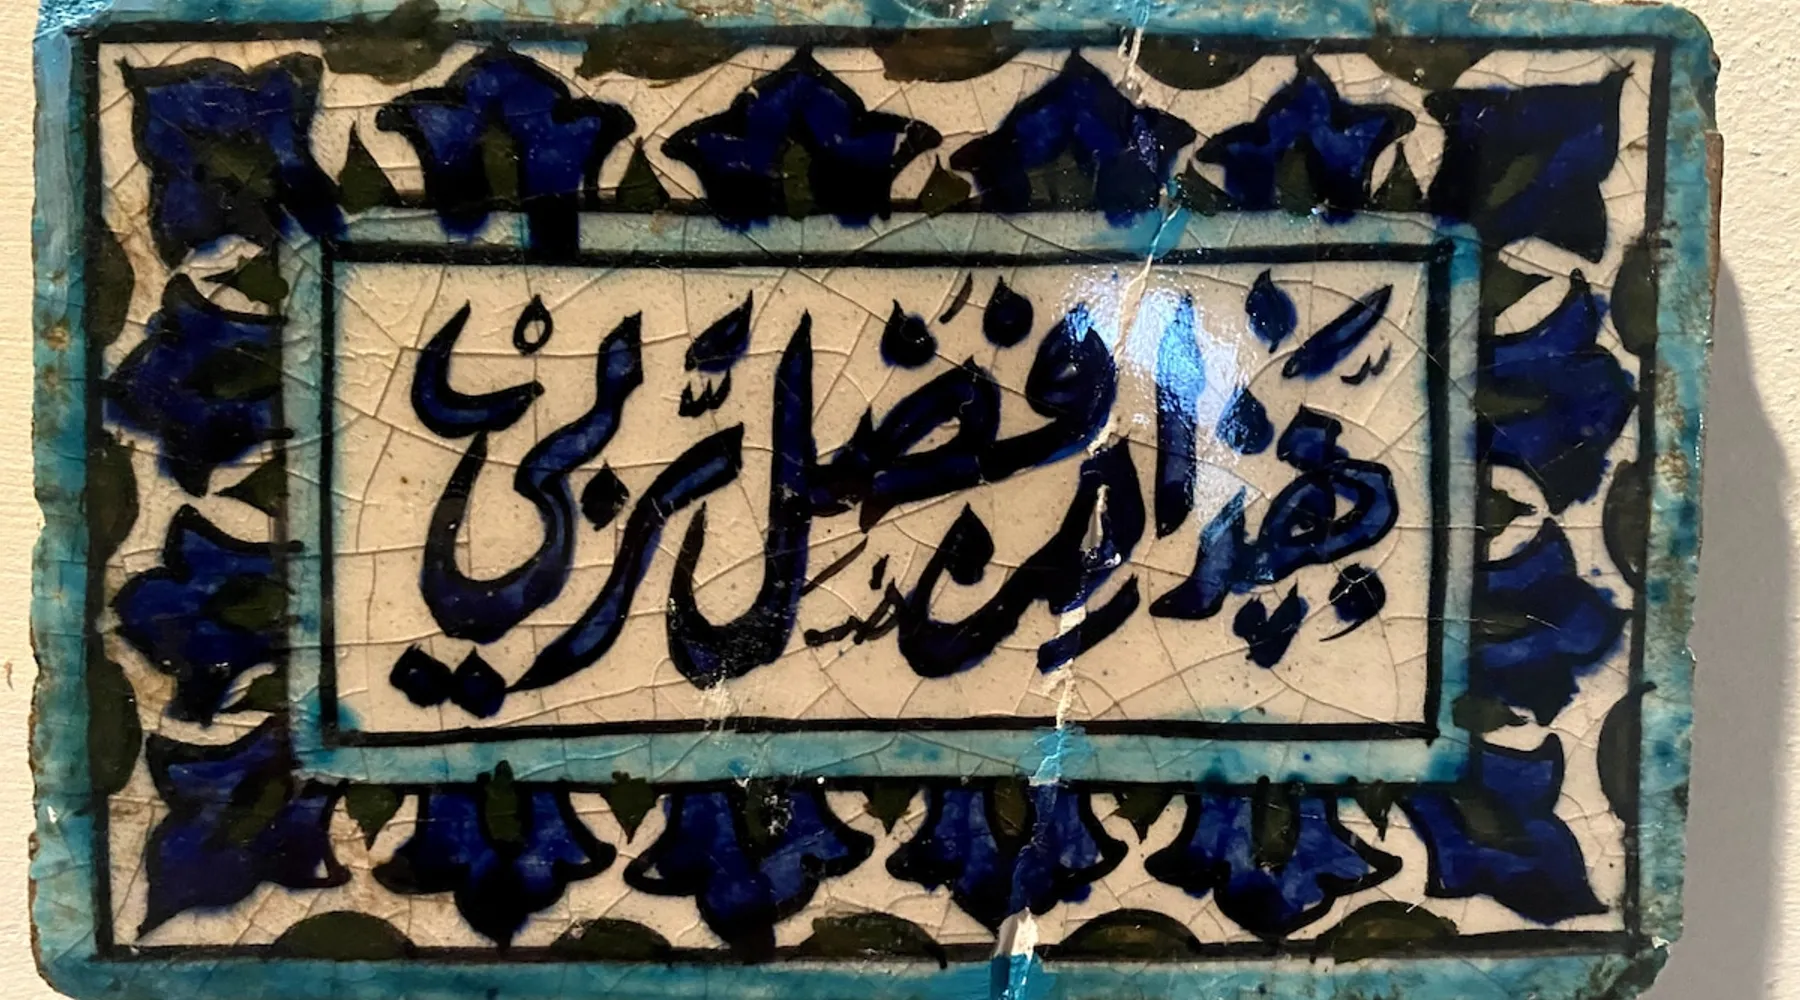 هذا من فضل ربّي